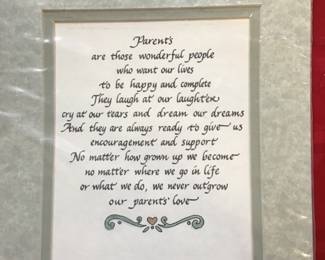 Parents
are those wonderful people
who want our lives
to be happy and complete
They laugh at our laughter
cry at our tears and dream our dreams
And they are always ready to give us
encouragement and support
No matter how grown up we become
no matter where we go in life
or what we do, we never outgrow
our parents' love